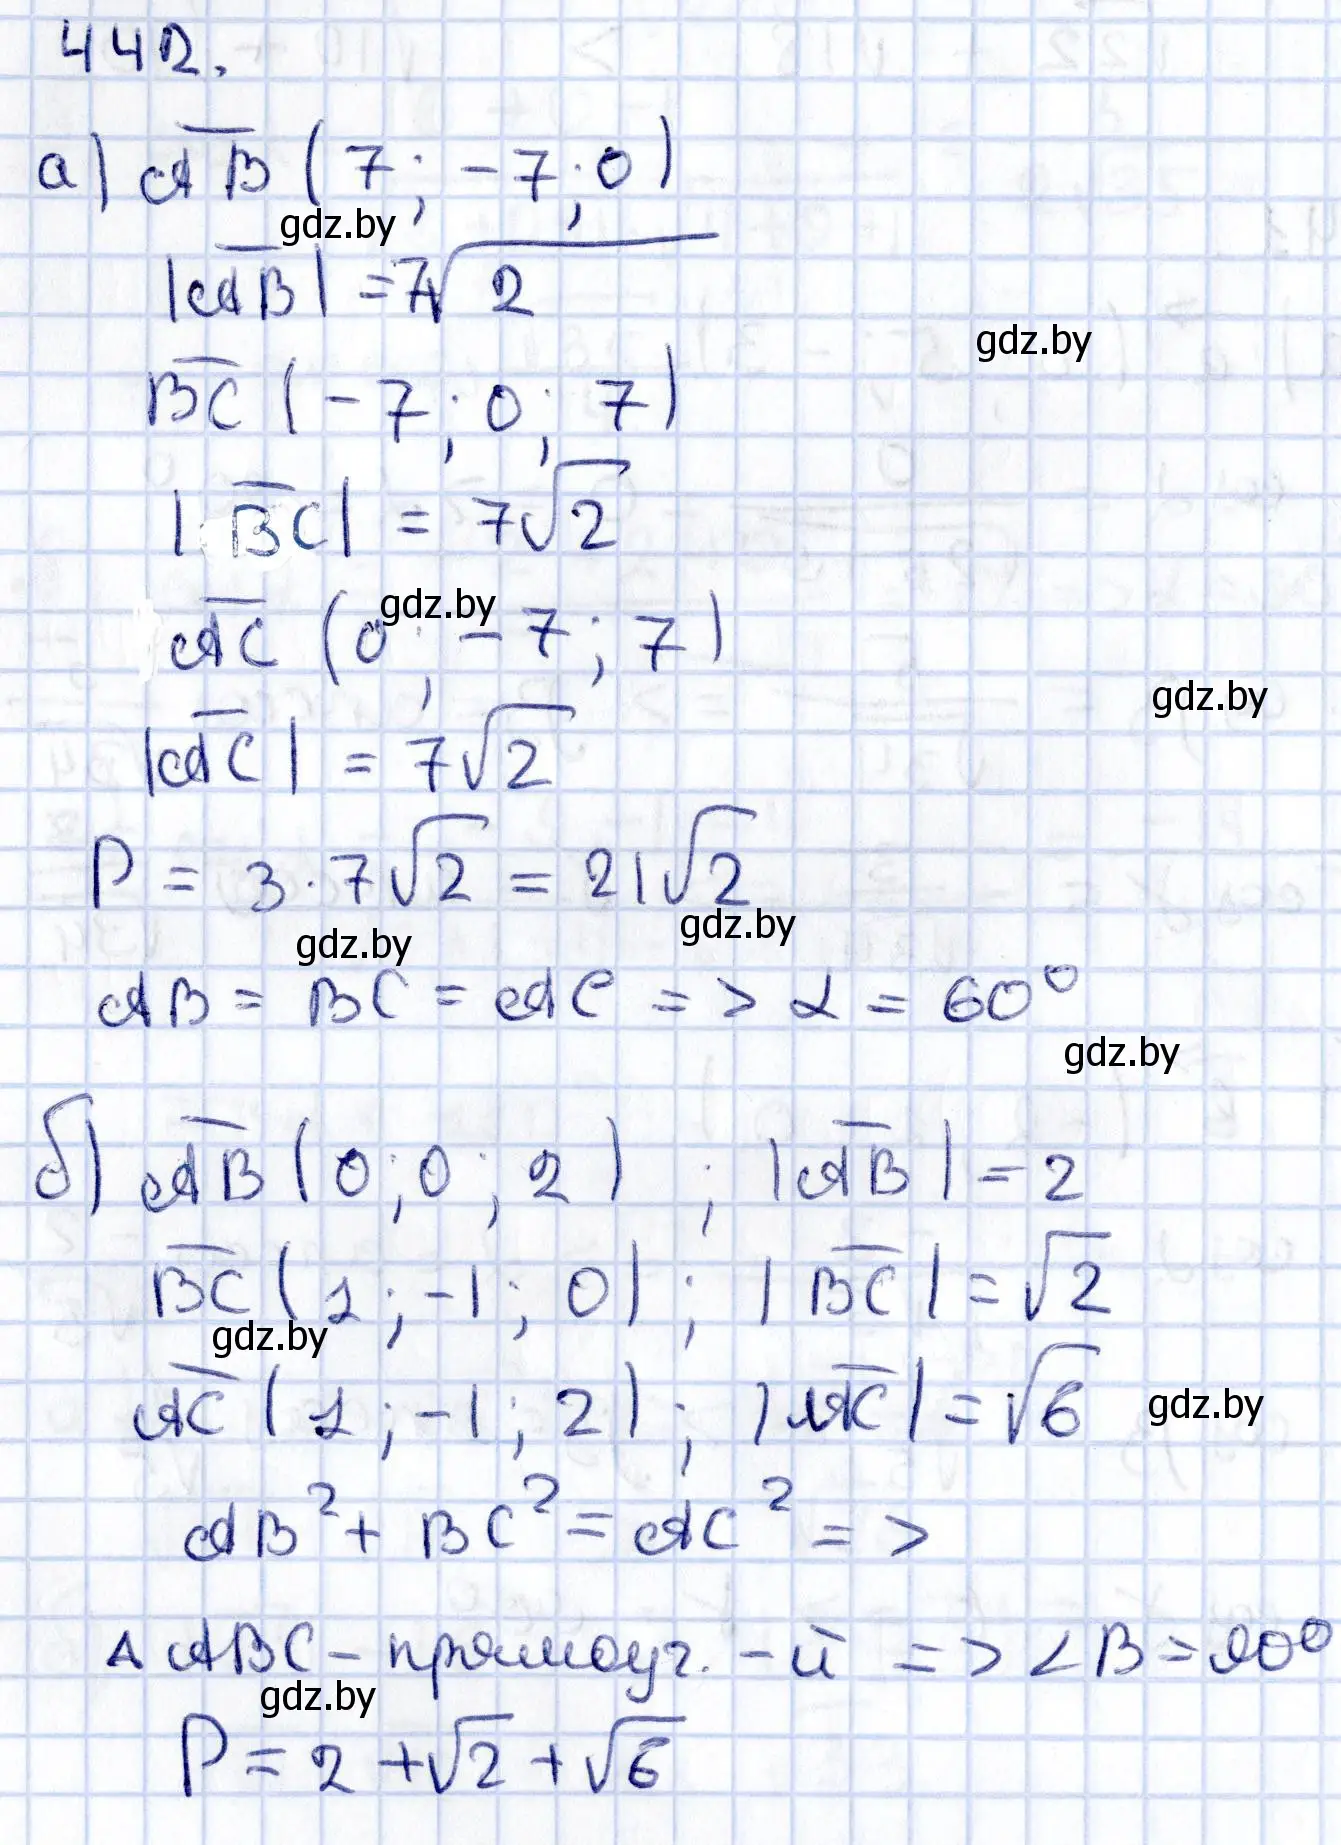 442.
а) AB (7; -7; 0)
gdz.by
|AB| = 7√2
gdz.by
BC (-7; 0; 7)
|BC| = 7√2
gdz.by
AC (0; -7; 7)
gdz.by
|AC| = 7√2
P = 3·7√2 = 21√2
gdz.by gdz.by
AB = BC = AC => α = 60°
gdz.by
б) AB (0; 0; 2) ; |AB| = 2
BC (1; -1; 0) ; |BC| = √2
gdz.by
AC (1; -1; 2) ; |AC| = √6
gdz.by
AB² + BC² = AC² =>
Δ ABC - прямоуг. - й => ∠B = 90°
gdz.by
P = 2 + √2 + √6